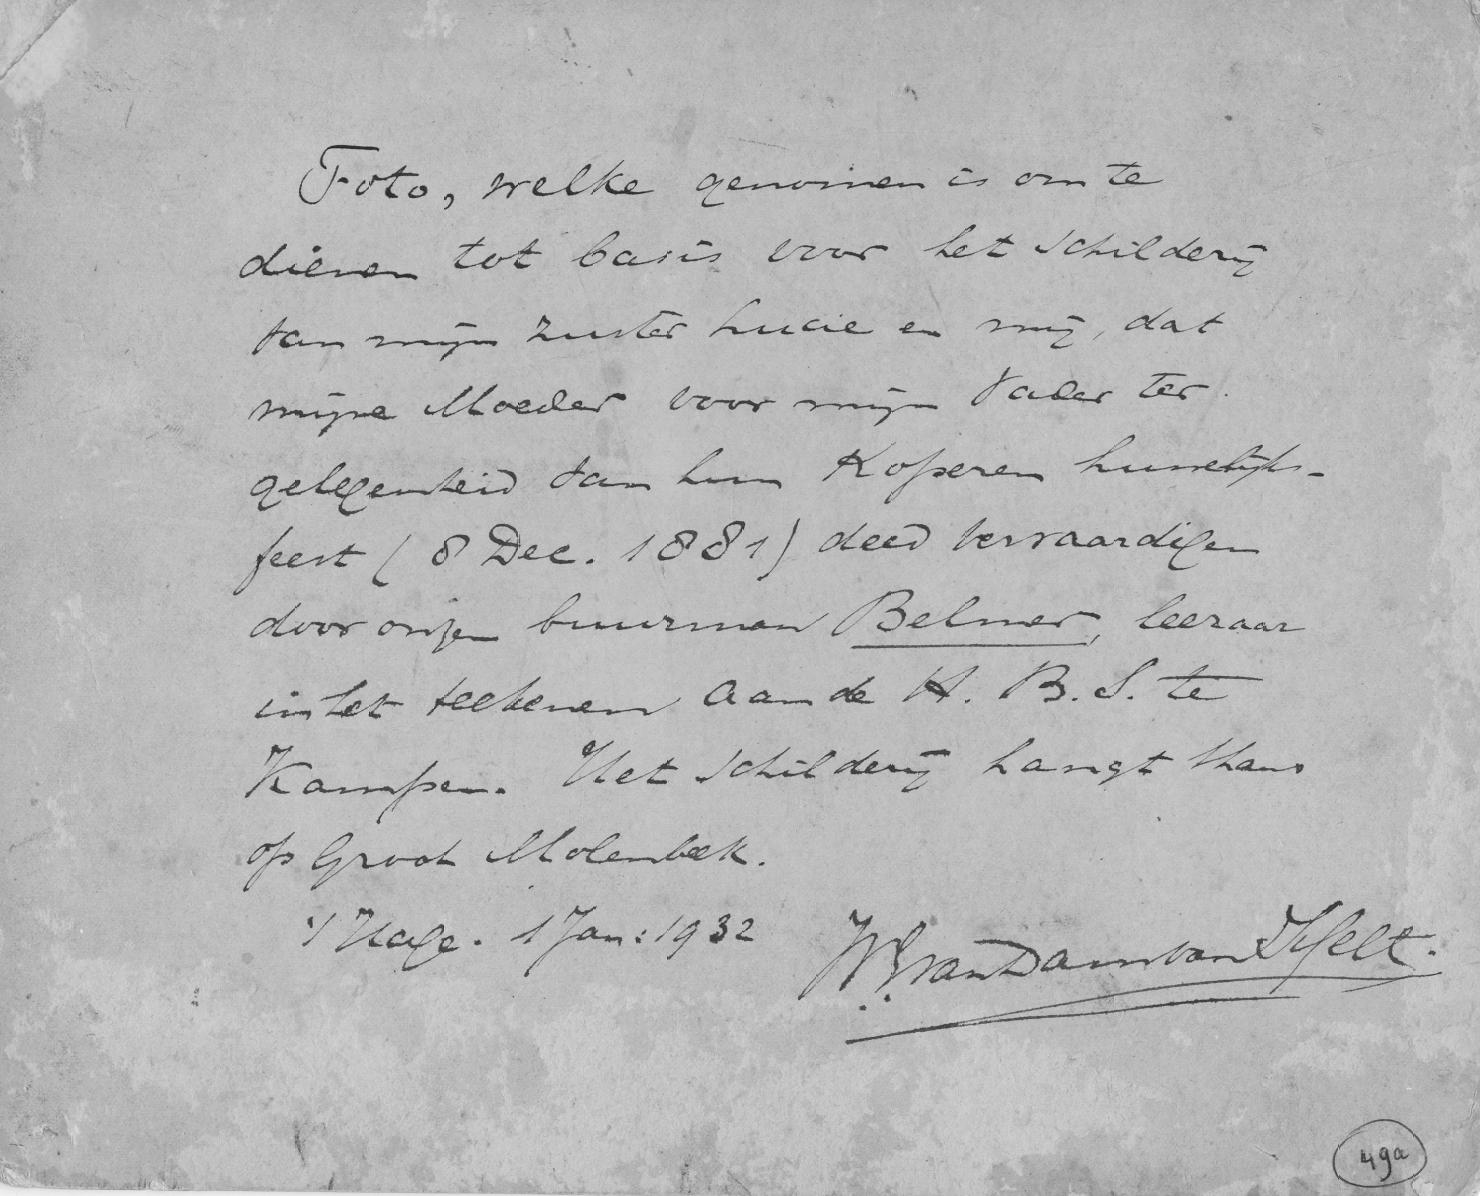 Foto, welke genomen is om te
dienen tot basis voor het schilderij
van mijn zuster Lucie en mij, dat
mijne Moeder voor mijn Vader ter
gelegenheid van hun Koperen huwelijks-
feest (8 Dec. 1881) deed vervaardigen
door onzen buurman Belmer, leeraar
in het teekenen aan de H. B. S. te
Kampen. Het schilderij hangt thans
op Groot Molenbeek.
's Hage. 1 Jan: 1932
van Dam van Isselt.
49a